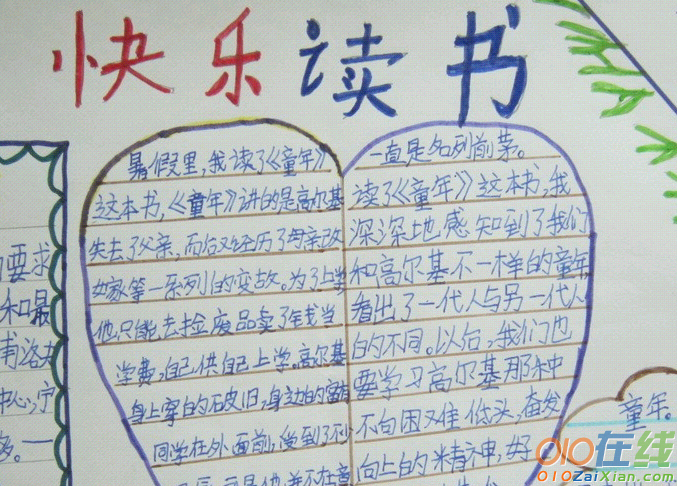 快乐读书
暑假里,我读了《童年》
这本书,《童年》讲的是高尔基
失去了父亲,而后又经历了母亲改
嫁等一系列的变故。为了上学
他只能去捡废品卖了钱当
学费,自己供自己上学。高尔基
身上穿的破旧,身边的富有
同学在外面前,受到了不少
一直是名列前茅。
读了《童年》这本书,我
深深地感知到了我们
和高尔基不一样的童年
看出了一代人与另一代人
的不同。以后,我们也
要学习高尔基那种
不向困难低头,奋发
向上的精神,好
要求
和最
中心,宁
童年。
010在线
010ZaiXian.com